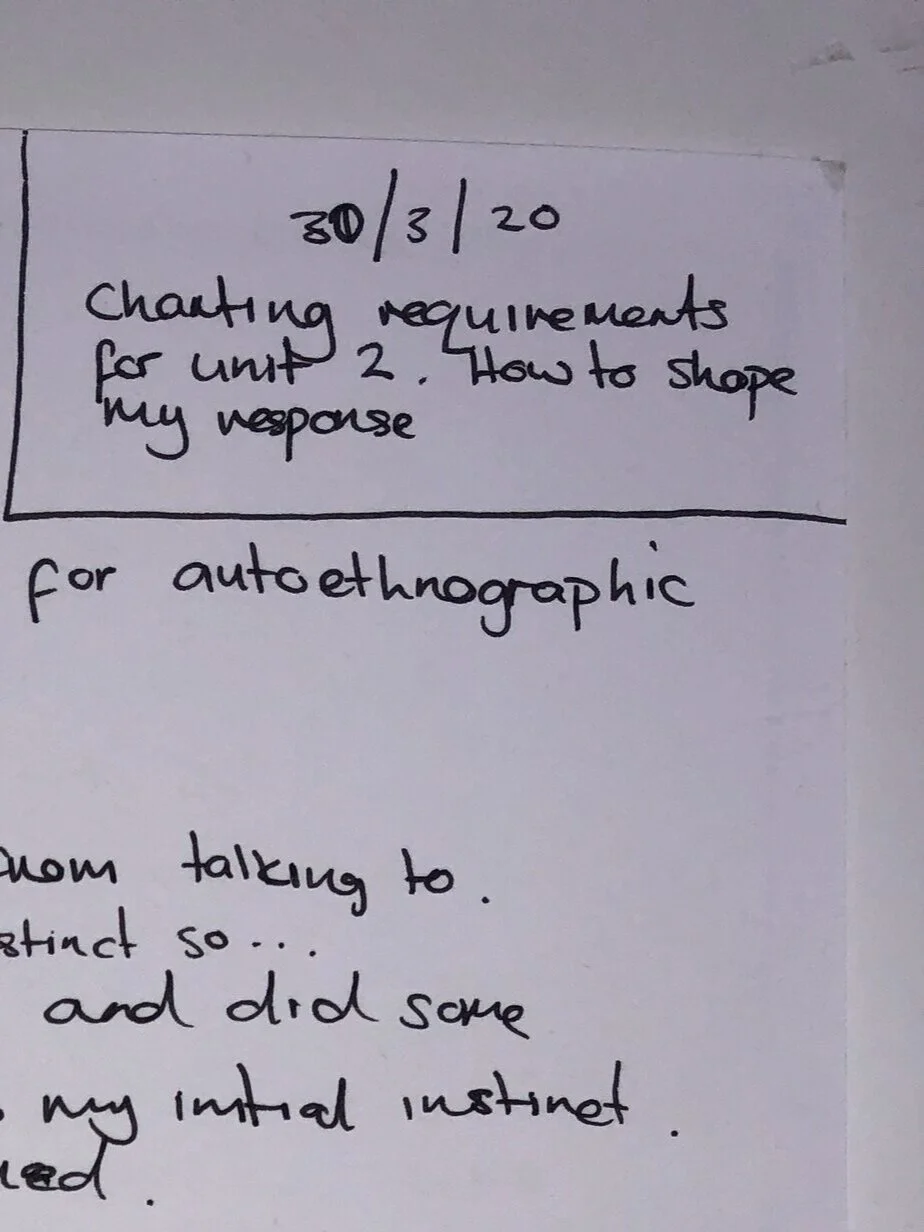 30/3/20
Charting requirements
for unit 2. How to shape
my response
for autoethnographic
from talking to.
stinct so...
and did some
my initial instinct.